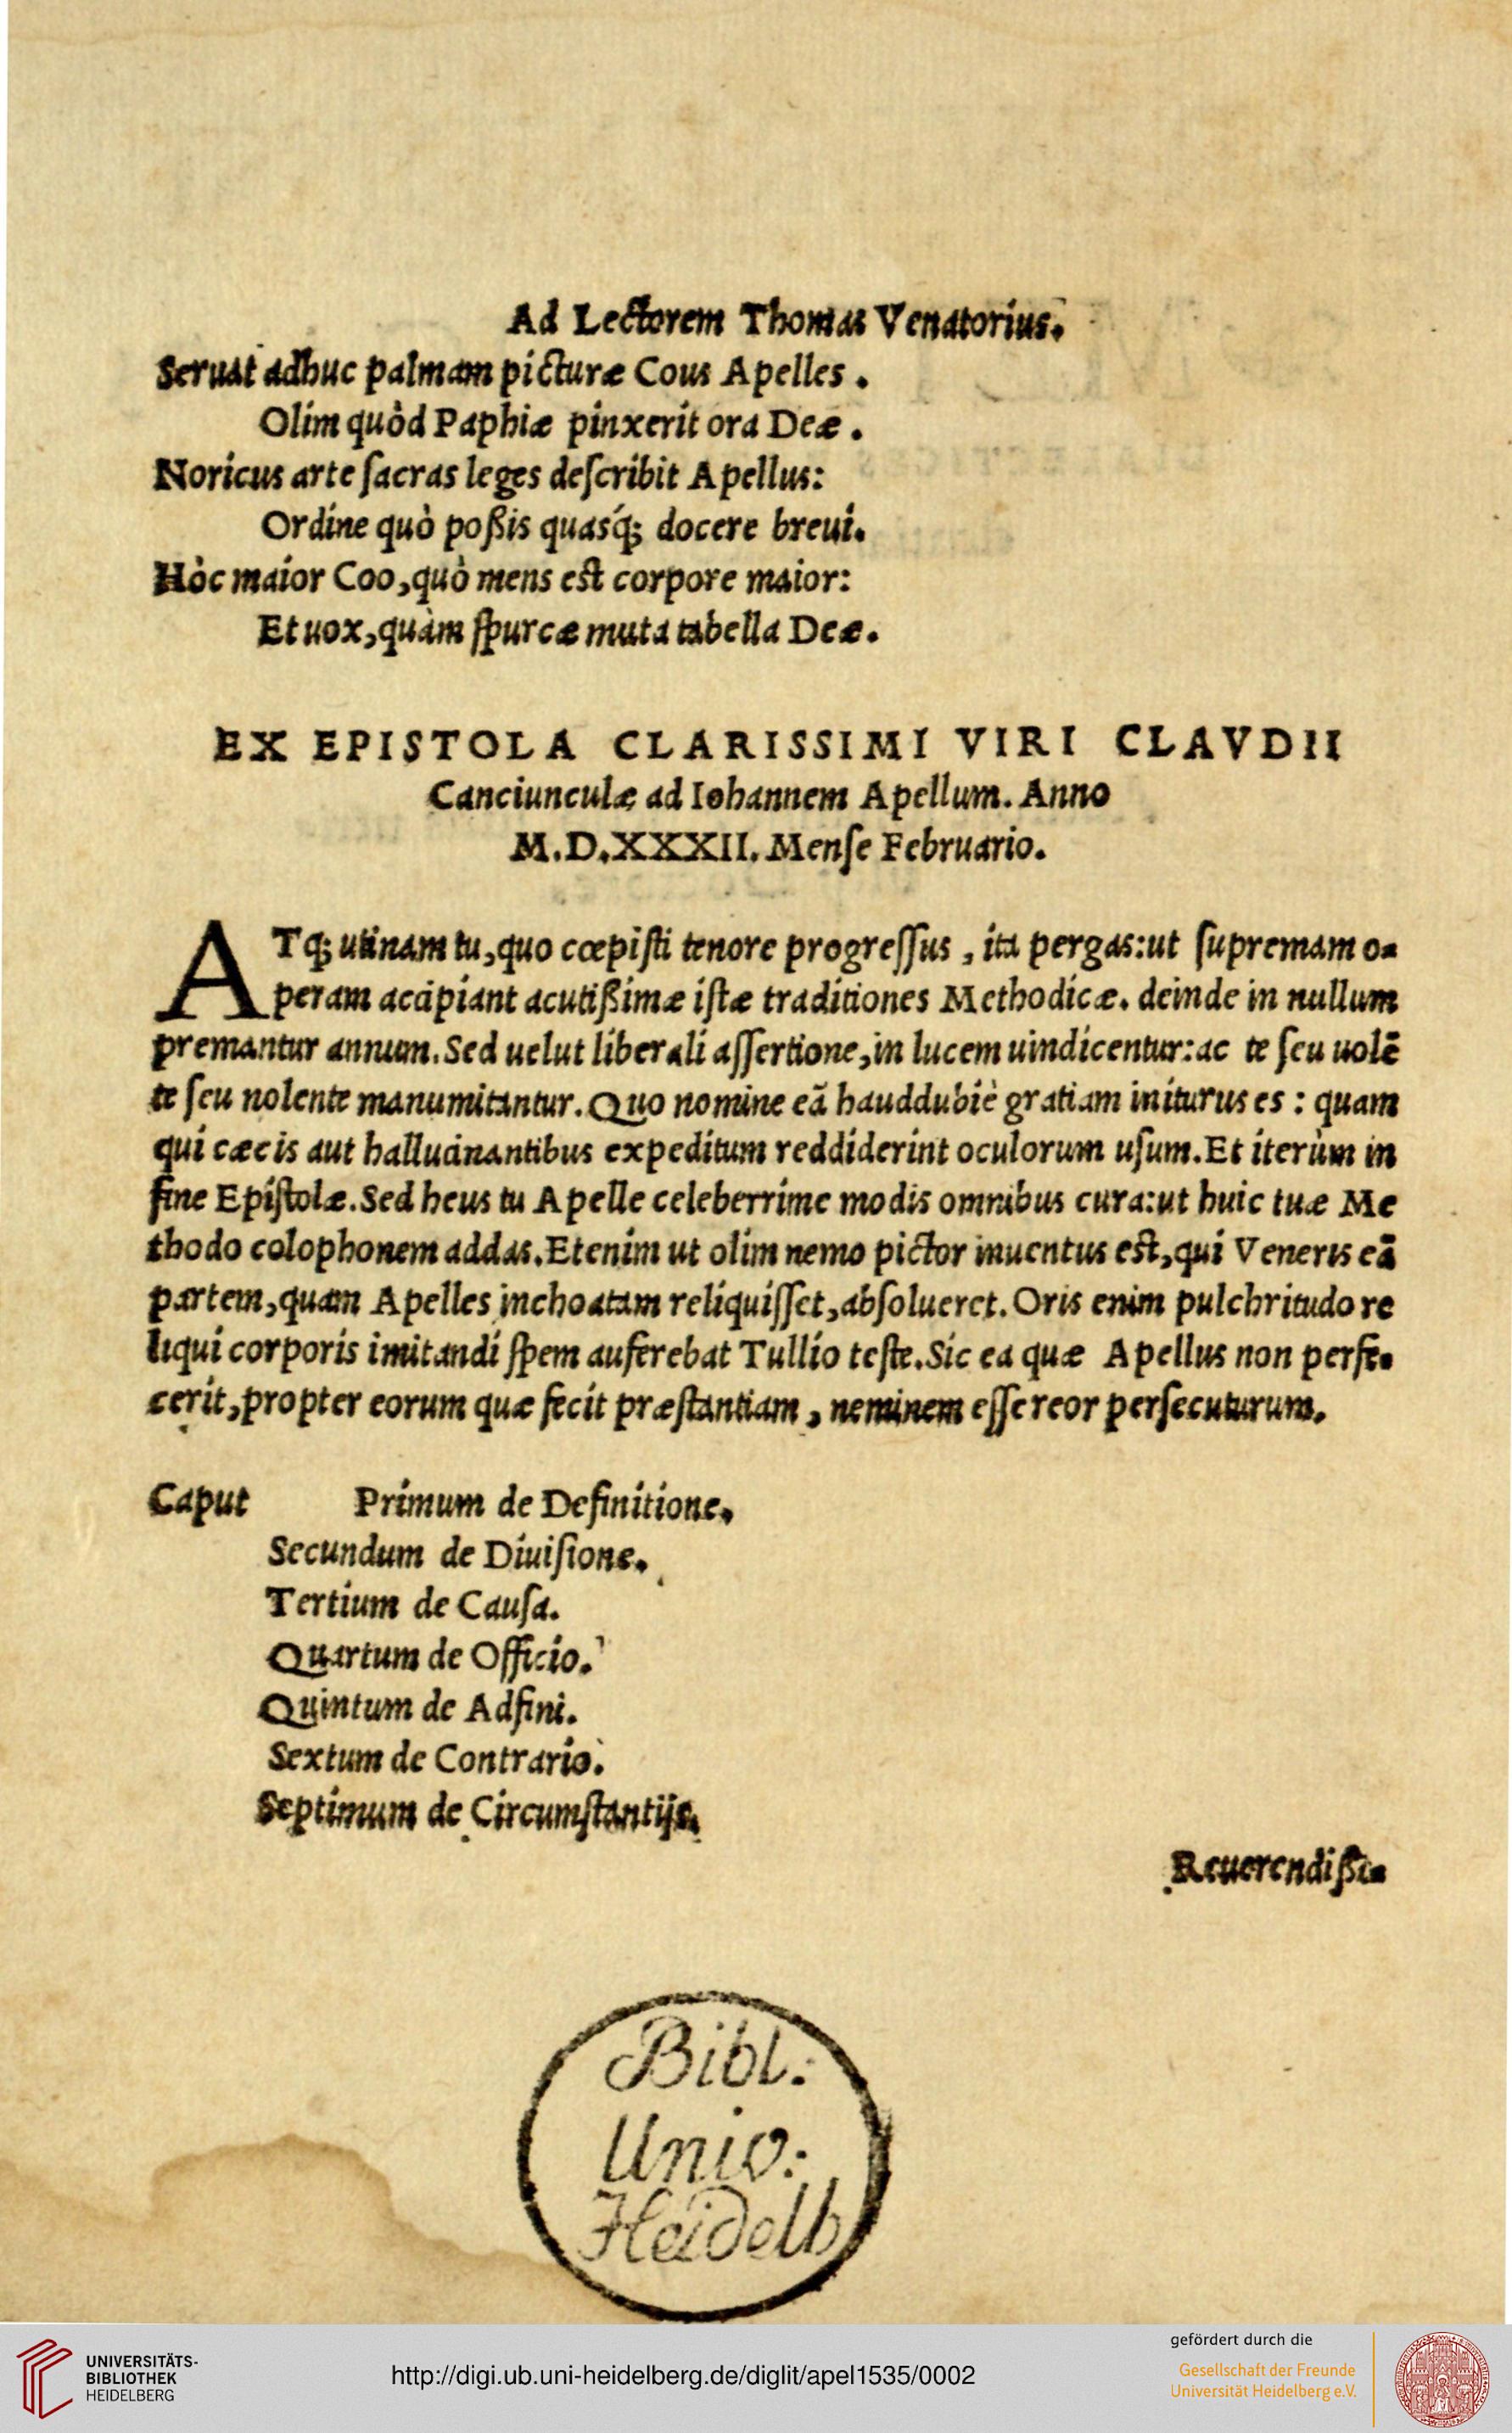 Ad Lectorem Thomas Venatorius.
Seruat adhuc palmam picturæ Cous Apelles.
Olim quòd Paphiæ pinxerit ora Deæ.
Noricus arte ſacras leges deſcribit Apellus:
Ordine quò poßis quasq́; docere breui.
Hòc maior Coo, quò mens est corpore maior:
Et uox, quàm ſpurcæ muta tabella Deæ.
EX EPISTOLA CLARISSIMI VIRI CLAVDII
Canciunculæ ad Iohannem Apellum. Anno
M.D.XXXII. Menſe Februario.
ATq; utinam tu, quo cœpiſti tenore progreſſus, ita pergas: ut ſupremam o-
peram accipiant acutißimæ iſtæ traditiones Methodicæ. deinde in nullum
premantur annum. Sed uelut liberali aſſertione, in lucem uindicentur: ac te ſeu uolē
te ſeu nolente manumitantur. Quo nomine eā hauddubiè gratiam initurus es: quam
qui cæcis aut hallucinantibus expeditum reddiderint oculorum uſum. Et iterùm in
fine Epiſtolæ. Sed heus tu Apelle celeberrime modis omnibus cura: ut huic tuæ Me
thodo colophonem addas. Etenim ut olim nemo pictor inuentus est, qui Veneris eā
partem, quam Apelles inchoatam reliquiſſet, abſolueret. Oris enim pulchritudo re
liqui corporis imitandi ſpem auferebat Tullio teſte. Sic ea quæ Apellus non perfe-
cerit, propter eorum quæ fecit præſtantiam, neminem eſſe reor perſecuturum.
Caput Primum de Definitione.
Secundum de Diuiſione.
Tertium de Cauſa.
Quartum de Officio.
Quintum de Adfini.
Sextum de Contrario.
Septimum de Circumſtantijs.
Reuerendißi-
Bibl:
Univ:
Heidelb
UNIVERSITÄTS-
BIBLIOTHEK
HEIDELBERG
http://digi.ub.uni-heidelberg.de/diglit/apel1535/0002
gefördert durch die
Gesellschaft der Freunde
Universität Heidelberg e.V.